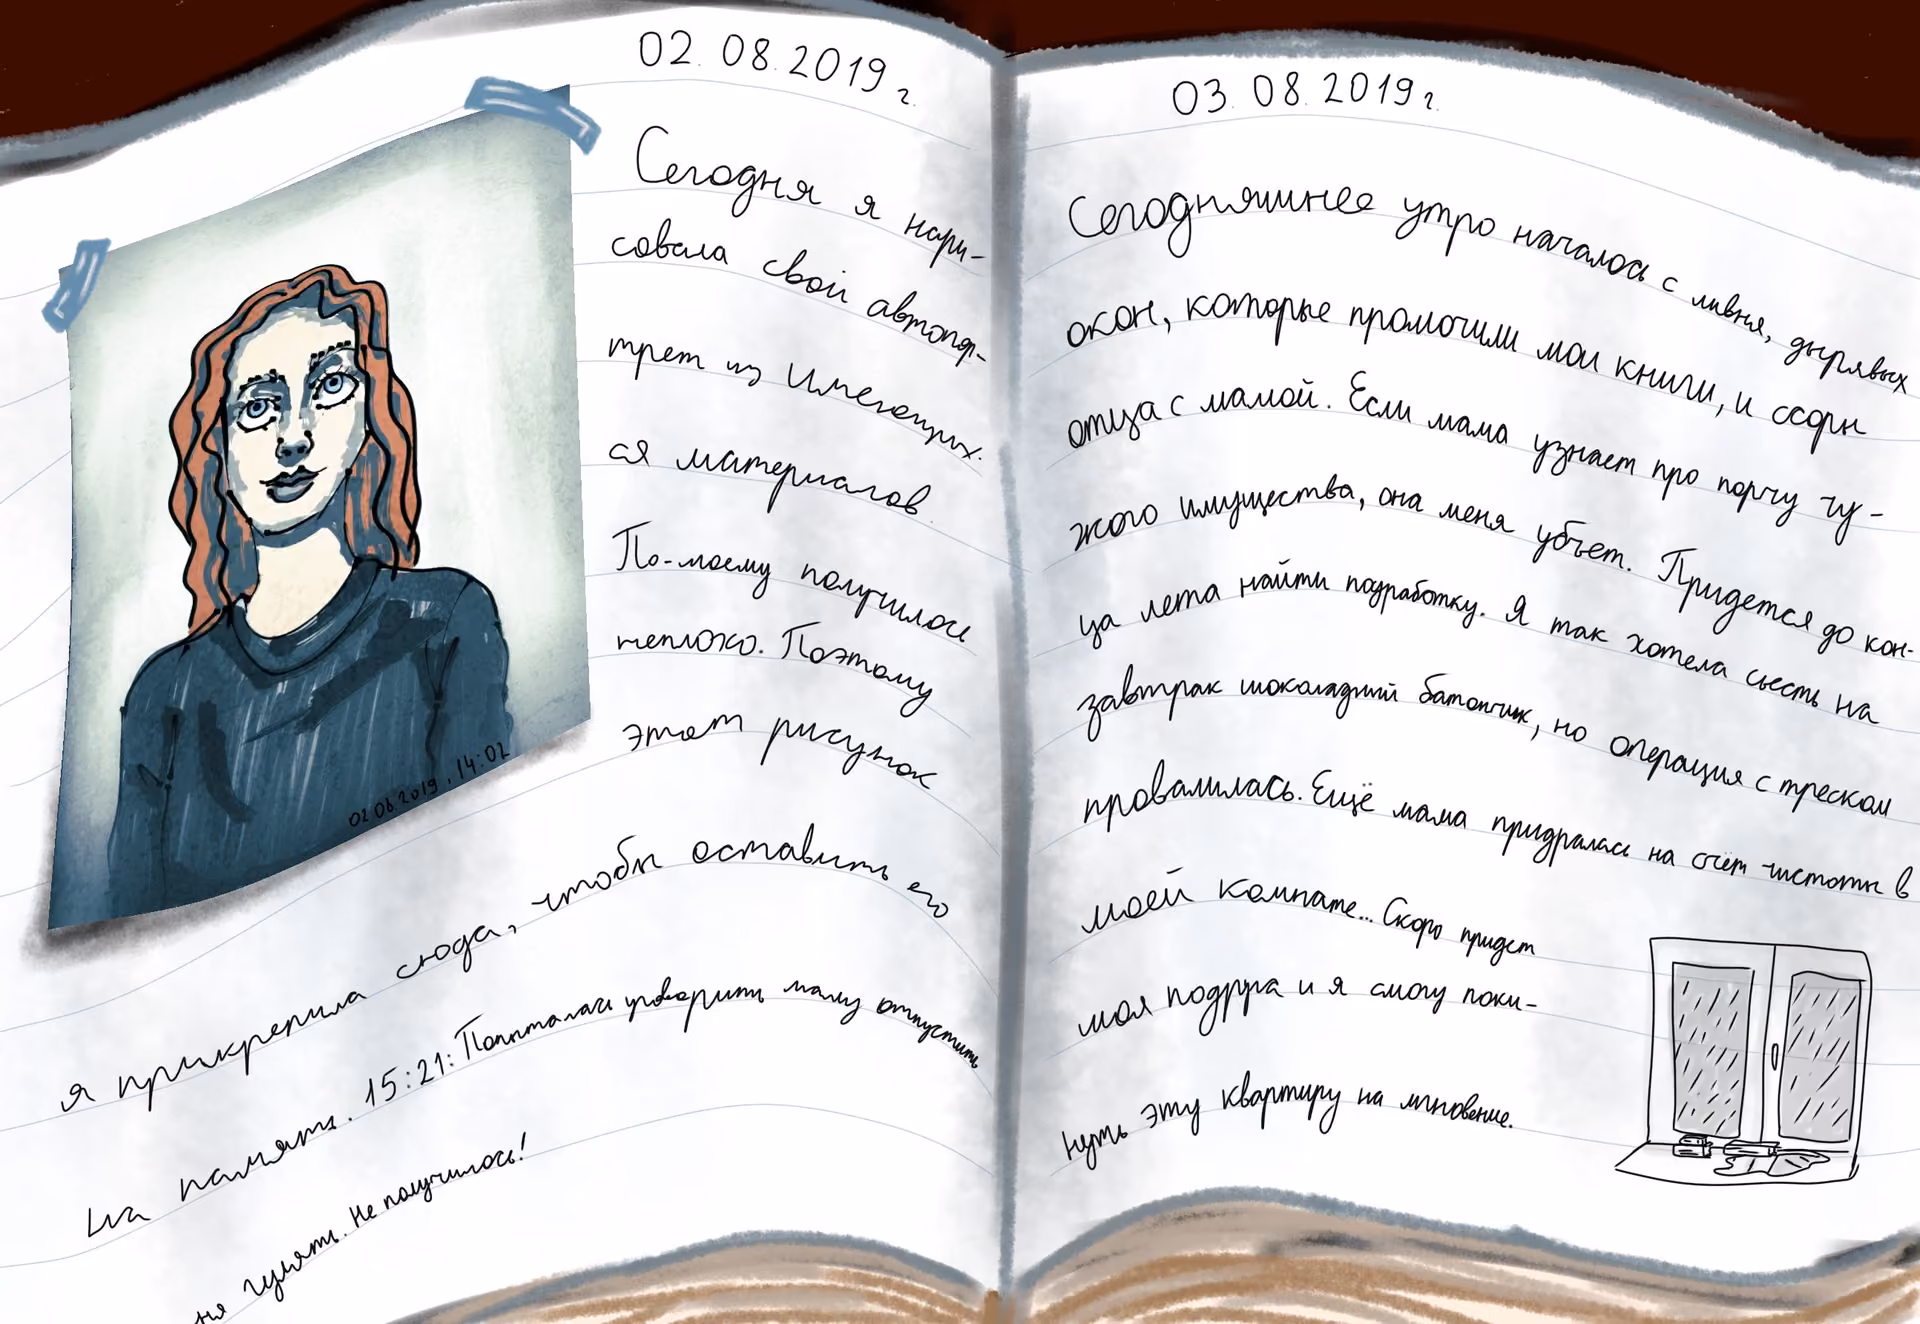 02.08.2019 г.
Сегодня я нари-
совала свой автопор-
трет из имеющих-
ся материалов.
По-моему получилось
неплохо. Поэтому
этот рисунок
02.06.2019, 14:02
я прикрепила сюда, чтобы оставить его
на память. 15:21: Попыталась уговорить маму отпустить
ня гулять. Не получилось!
03.08.2019 г.
Сегодняшнее утро началось с ливня, дырявых
окон, которые промочили мои книги, и ссоры
отца с мамой. Если мама узнает про порчу чу-
жого имущества, она меня убъет. Придется до кон-
ца лета найти подработку. Я так хотела съесть на
завтрак шоколадный батончик, но операция с треском
провалилась. Ещё мама придралась на счёт чистоты в
моей комнате... Скоро придет
моя подруга и я смогу поки-
нуть эту квартиру на мгновение.